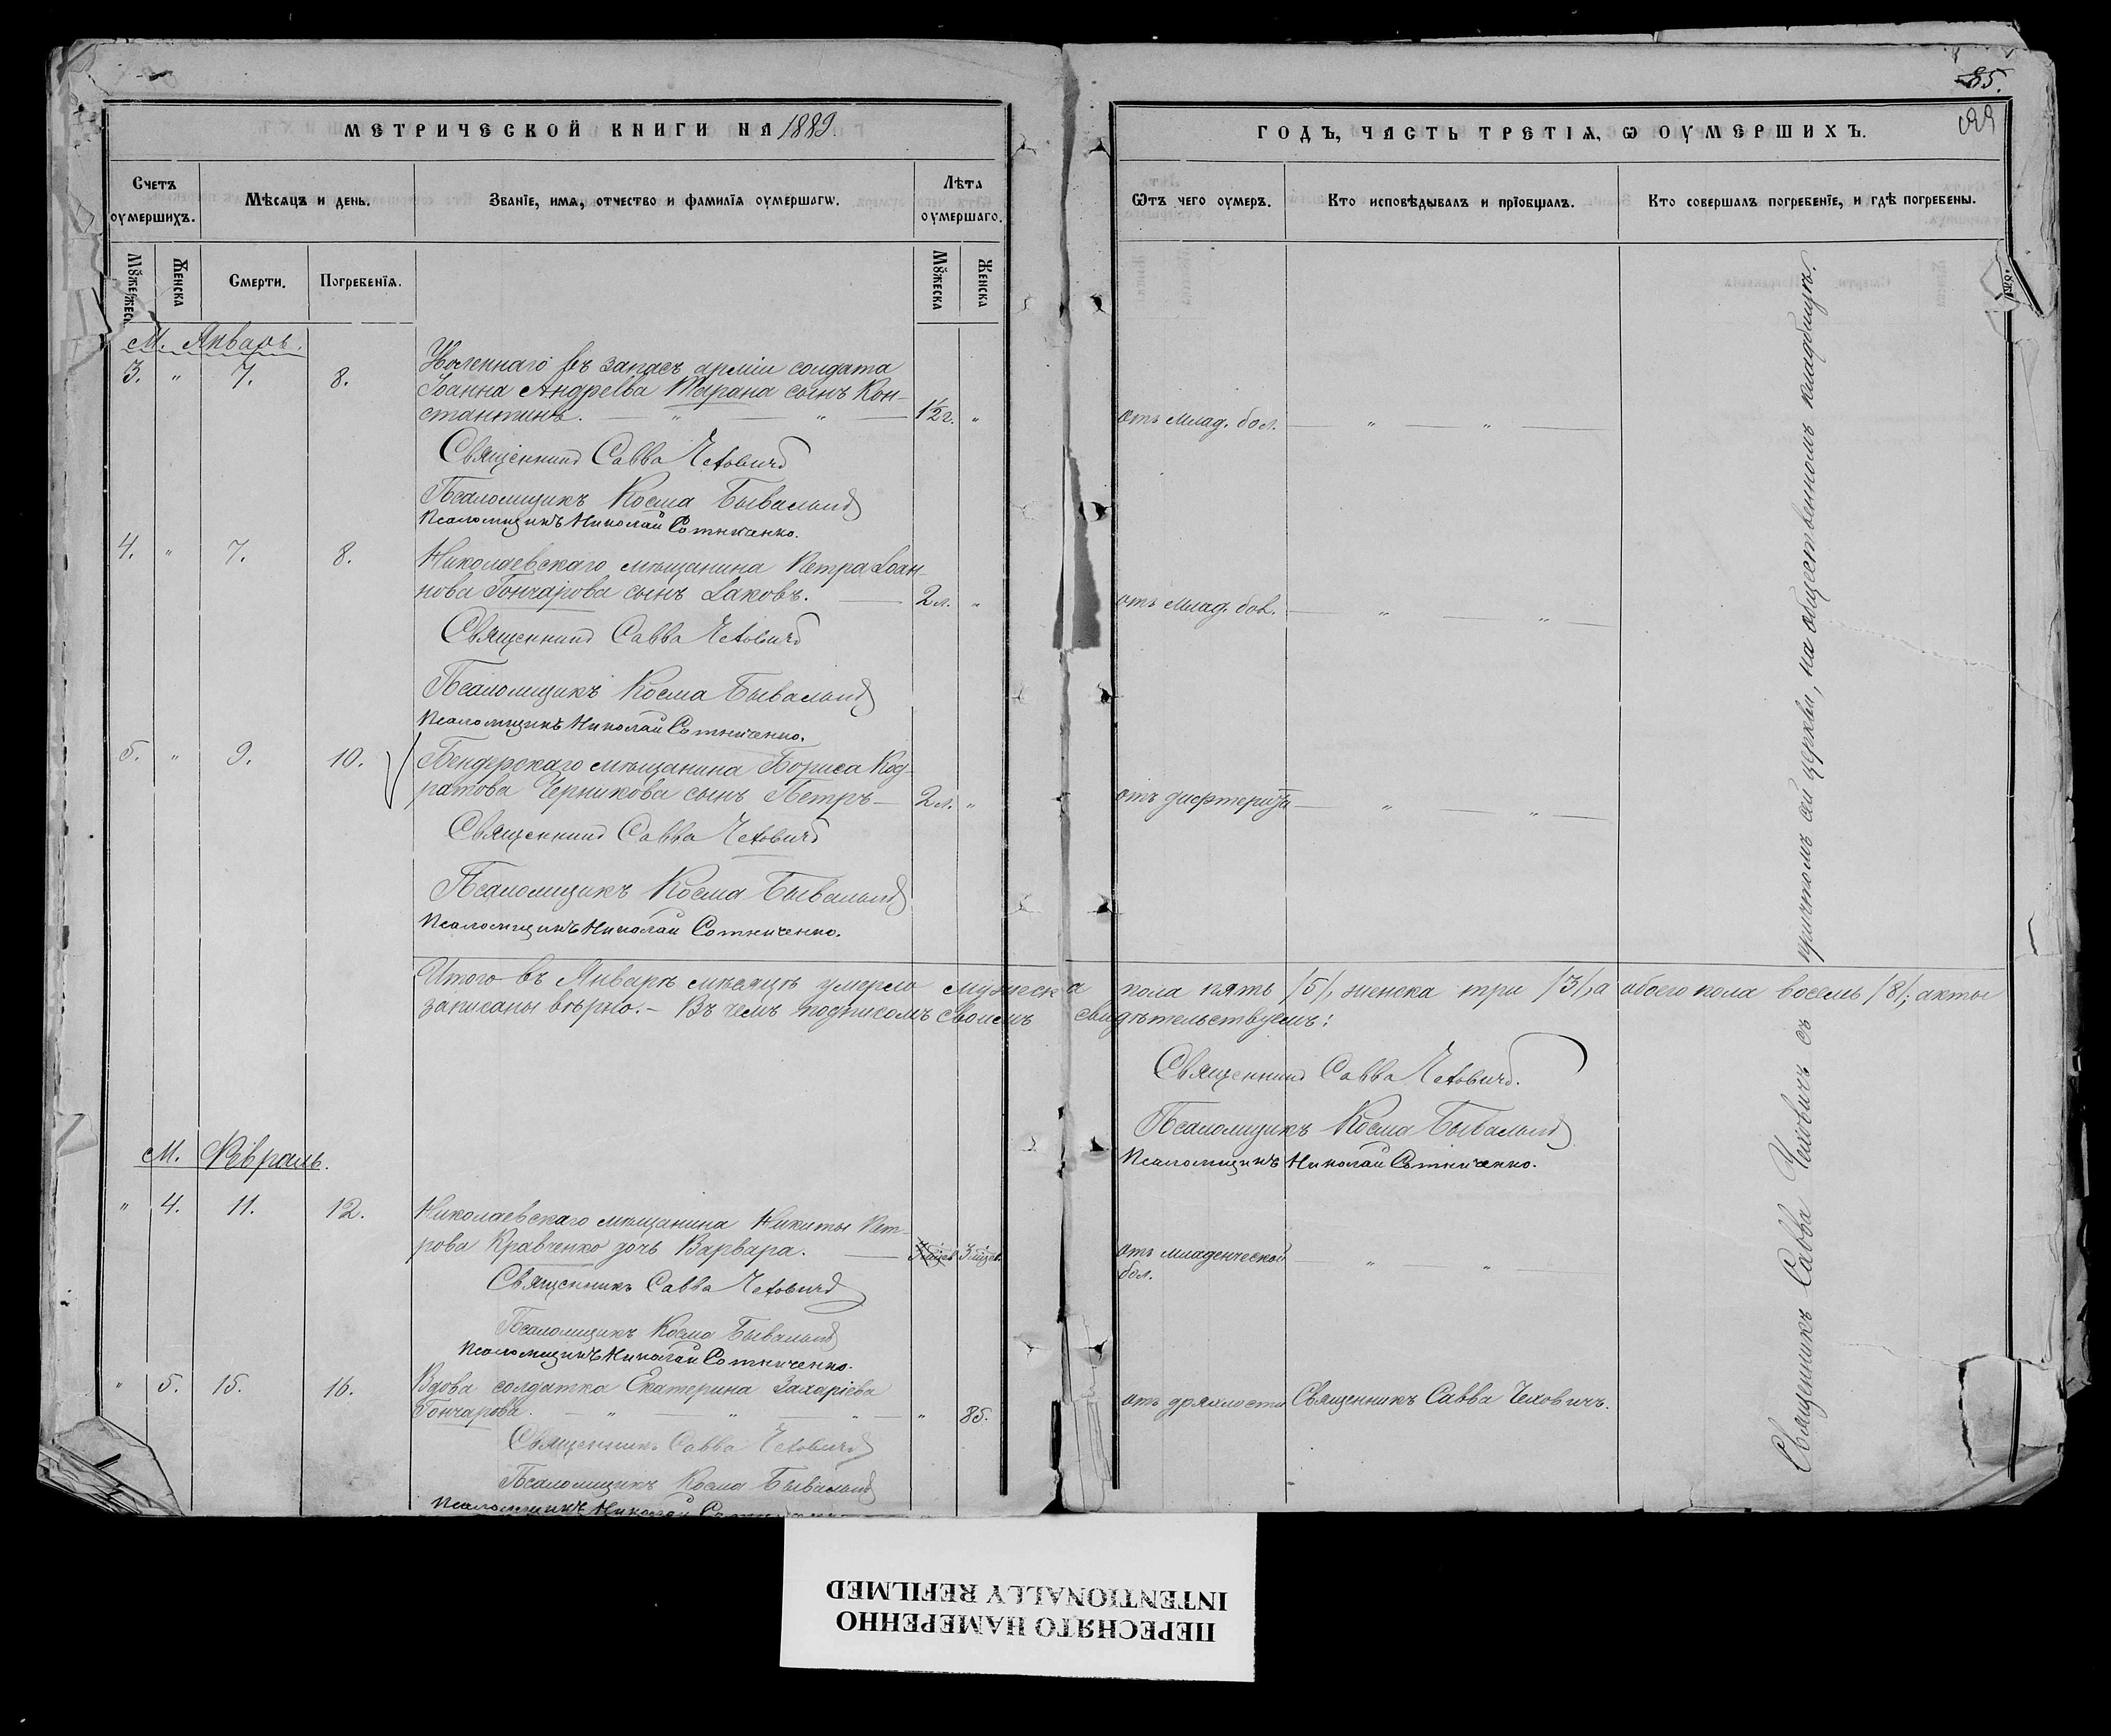 85.
МЕТРИЧЕСКОЙ КНИГИ НА 1889
ГОДЪ, ЧАСТЬ ТРЕТІѦ, Ѡ ОУМЕРШИХЪ.
Счетъ оумершихъ.
Мѣсяцъ и день.
Званїе, имѧ, отчество и фамилїѧ оумершагѡ.
Лѣта оумершаго.
Ѿтъ чего оумеръ.
Кто исповѣдывалъ и прїобщалъ.
Кто совершалъ погребенїе, и гдѣ погребены.
Женска
Смерти.
Погребенїѧ.
Мꙋжеска
Женска
М. Январь.
3. " 7. 8.
Уволеннаго въ запасъ арміи солдата
Іоанна Андреева Тарана сынъ Кон-
стантинъ. — " — " — 1½ г. "
отъ млад. бол. — " — " —
Священникъ Савва Чеховичъ
Псаломщикъ Косма Бывалый
Псаломщикъ Николай Сотниченко.
4. " 7. 8.
Николаевскаго мѣщанина Петра Іоан-
нова Гончарова сынъ Іаковъ. — 2 л. "
отъ млад. бол. — " — " —
Священникъ Савва Чеховичъ
Псаломщикъ Косма Бывалый
Псаломщикъ Николай Сотниченко.
5. " 9. 10.
Бендерскаго мѣщанина Бориса Код-
ратова Черникова сынъ Петръ — 2 л. "
отъ дифтерита — " — " —
Священникъ Савва Чеховичъ
Псаломщикъ Косма Бывалый
Псаломщикъ Николай Сотниченко.
Итого въ Январѣ мѣсяцѣ умерло мужеска пола пять /5/, женска три /3/, а обоего пола восемь /8/; акты
записаны вѣрно. – Въ чемъ подписомъ своимъ свидѣтельствуемъ:
Священникъ Савва Чеховичъ.
Псаломщикъ Косма Бывалый
Псаломщикъ Николай Сотниченко.
М. Февраль.
" 4. 11. 12.
Николаевскаго мѣщанина Никиты Пет-
рова Кравченко дочь Варвара. — 3 мѣсяц.
отъ младенческой — " — " —
бол.
Священникъ Савва Чеховичъ
Псаломщикъ Косма Бывалый
Псаломщикъ Николай Сотниченко.
" 5. 15. 16.
Вдова солдатка Екатерина Захаріева
Гончарова. — " — " — " — " 85.
отъ дряхлости Священникъ Савва Чеховичъ.
Священникъ Савва Чеховичъ
Псаломщикъ Косма Бывалый
Псаломщикъ Николай
Священникъ Савва Чеховичъ съ причтомъ сей церкви, на общественномъ кладбищѣ.
ПЕРЕСНЯТО НАМЕРЕННО
INTENTIONALLY REFILMED